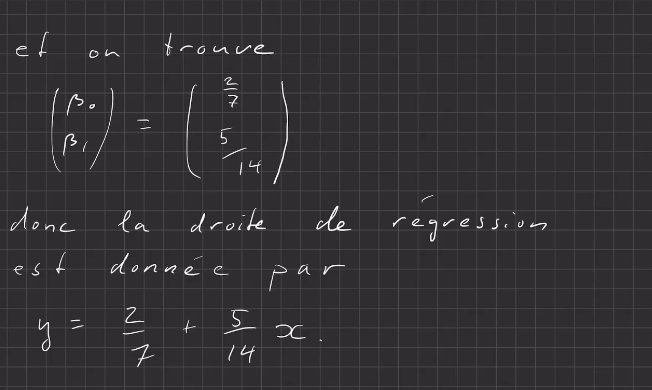 et on trouve
(β₀ β₁) = (2/7 5/14)
donc la droite de régression
est donnée par
y = 2/7 + 5/14 x.